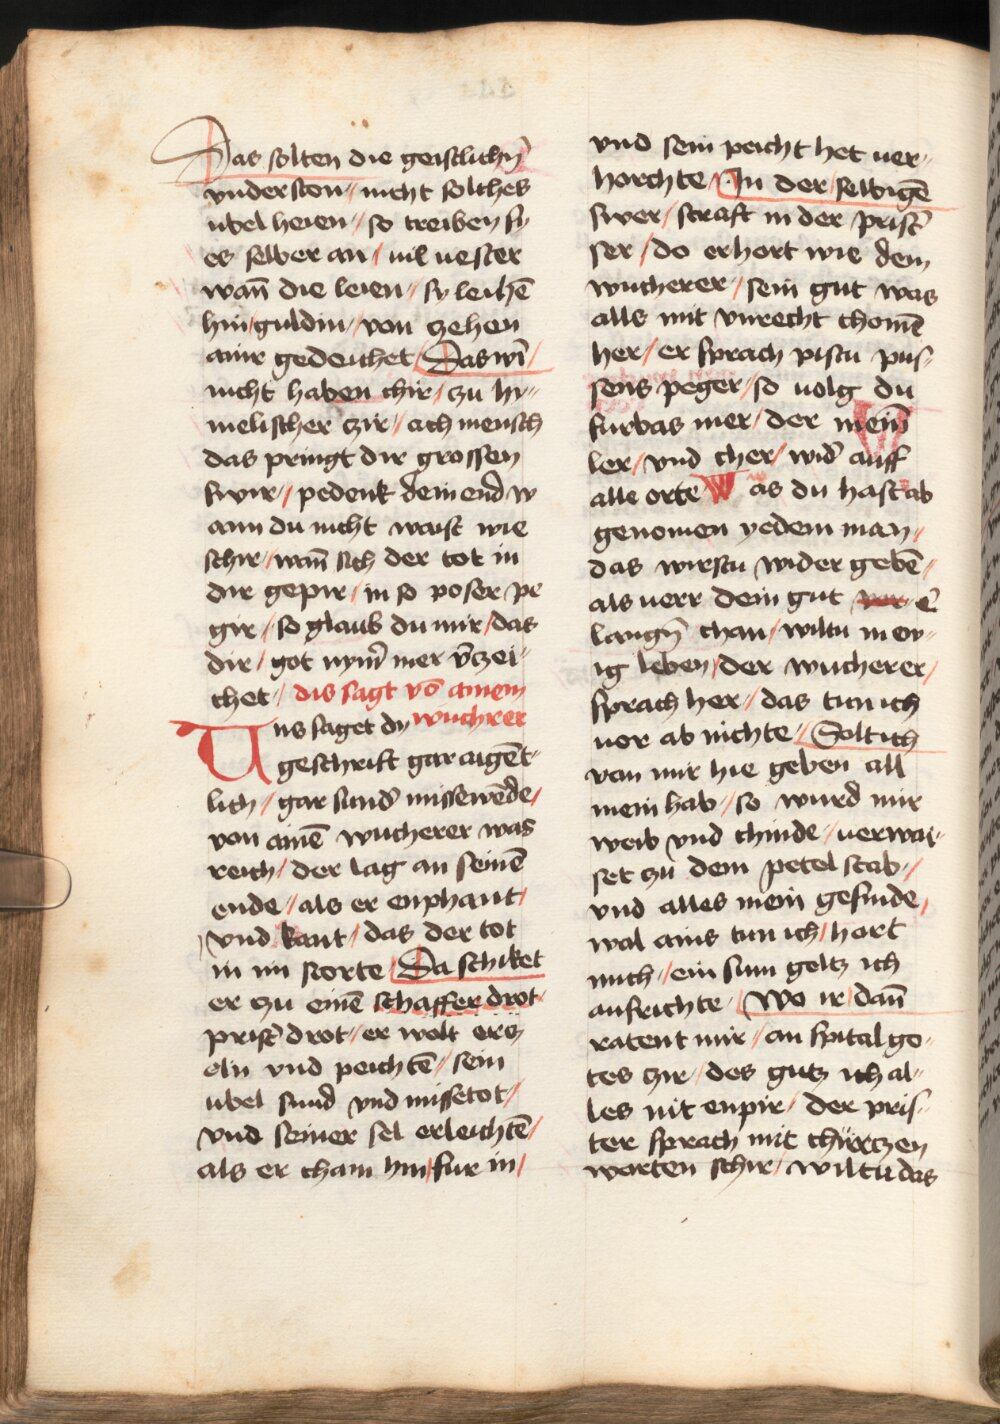 Das solten die geistlichñ
vndersten / nicht solches
ubel heien / so treiben sy
es selber an / uil uester
wañ die leien / sy leihē
hin / guldin / von zehen
ainr gedeichet / Das wī /
nicht haben chir / zu hy-
melischer zir / ach mensch
das pringt dir grossen
swir / pedenk dein end w
ann du nicht waist wie
schir / wañ sich der tot in
dir gepir / in so poser pe
gir / so glaub du mir / das
dir / got nym̄ mer v̄czei-
chet / dis sagt vō ainem
wuchrer
Uns saget dy
geschrift gar aigēt-
lich / gar sund̄ missewēde /
von ainē wucherer was
reich / der lag an seinē
ende / als er enphant /
vnd kant / das der tot
in im storte / Da schiket
er zu einē schaffer drot
prist̄ drot / er wolt ercz
oln vnd peichtē / sein
ubel sund vnd missetot /
vnd seiner sel erleichtē /
als er cham hin / fur in /
vnd sein peicht het uer-
horchte / In der selbigē
swer / straft in der prist̄
ser / do er hort wie dem
wucherer / sein gut was
alls mit vnrecht chomē
her / er sprach pistu pus-
sens peger / so uolg du
furbas mer / der mein̄
ler / vnd cher / wid̄ auff
alle orte Was du hast ab
genomen yedem man /
das wirstu wider gebē /
als uerr dein gut er
langñ chan / wiltu in ew-
ig leben / der wucherer /
sprach her / das tun ich
uor ab nichte / Solt ich
von mir hie geben all
mein hab / so wurd mir
weib vnd chinde / uerwai-
set zu dem petel stab /
vnd alles mein gesinde /
wol ains tun ich / hort
mich / ein sum geltz ich
aufrichte / Wo ir dañ
ratent mir / an spital go-
tes zir / des gutz ich al-
les nit enpir / der pris-
ter sprach mit chürczen
worten schir / wiltu das